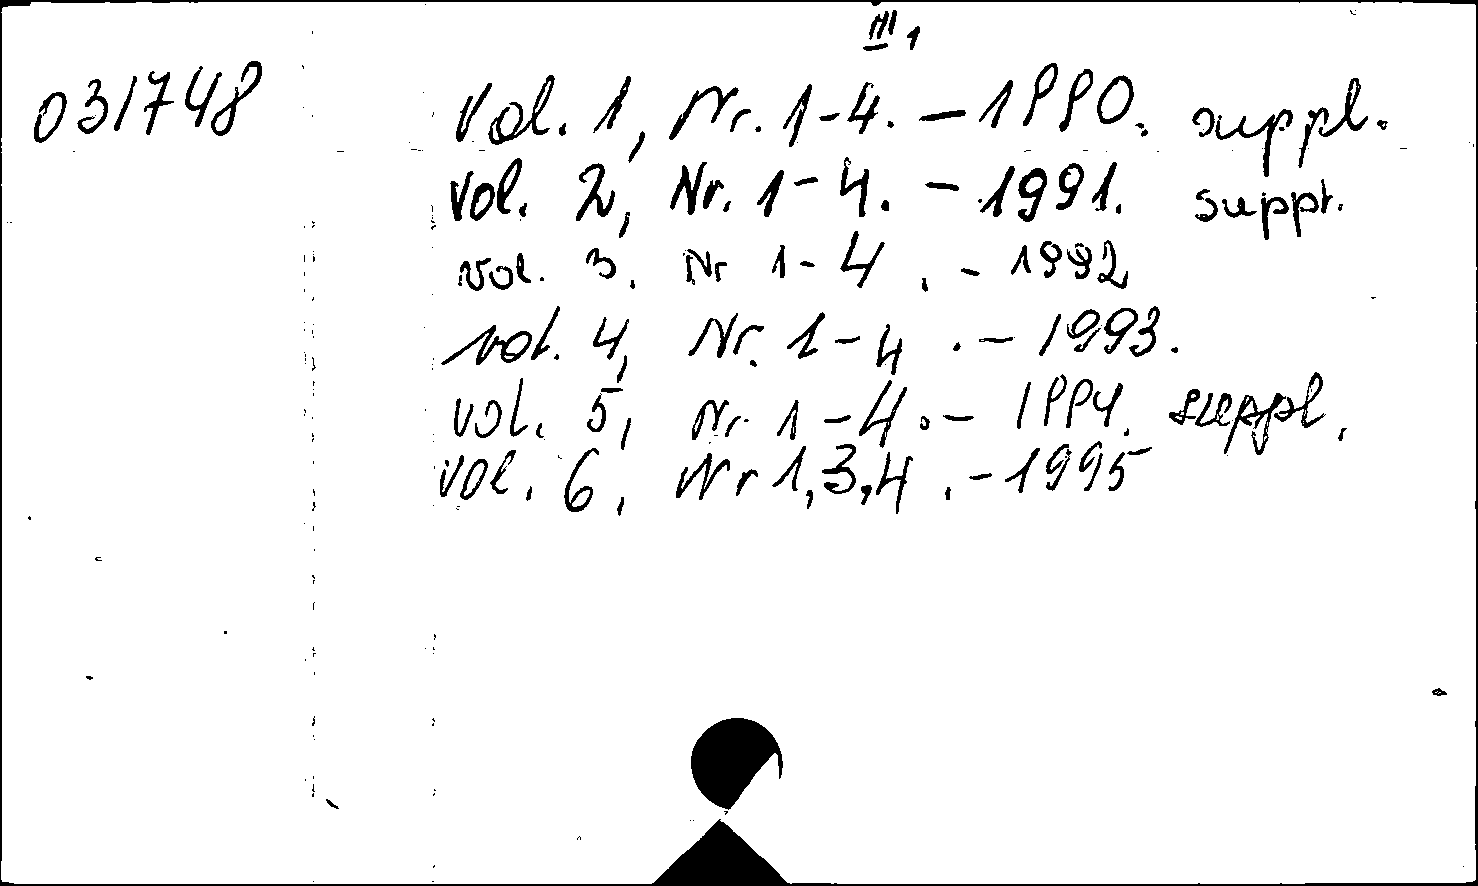 III 1
031748 Vol. 1, Nr. 1-4. - 1990. suppl.
Vol. 2, Nr. 1-4. - 1991. suppl.
vol. 3, Nr 1-4 . - 1992
vol. 4, Nr. 1-4 . - 1993.
vol. 5, Nr. 1-4 . - 1994. suppl.
vol. 6, Nr 1,3,4 . - 1995